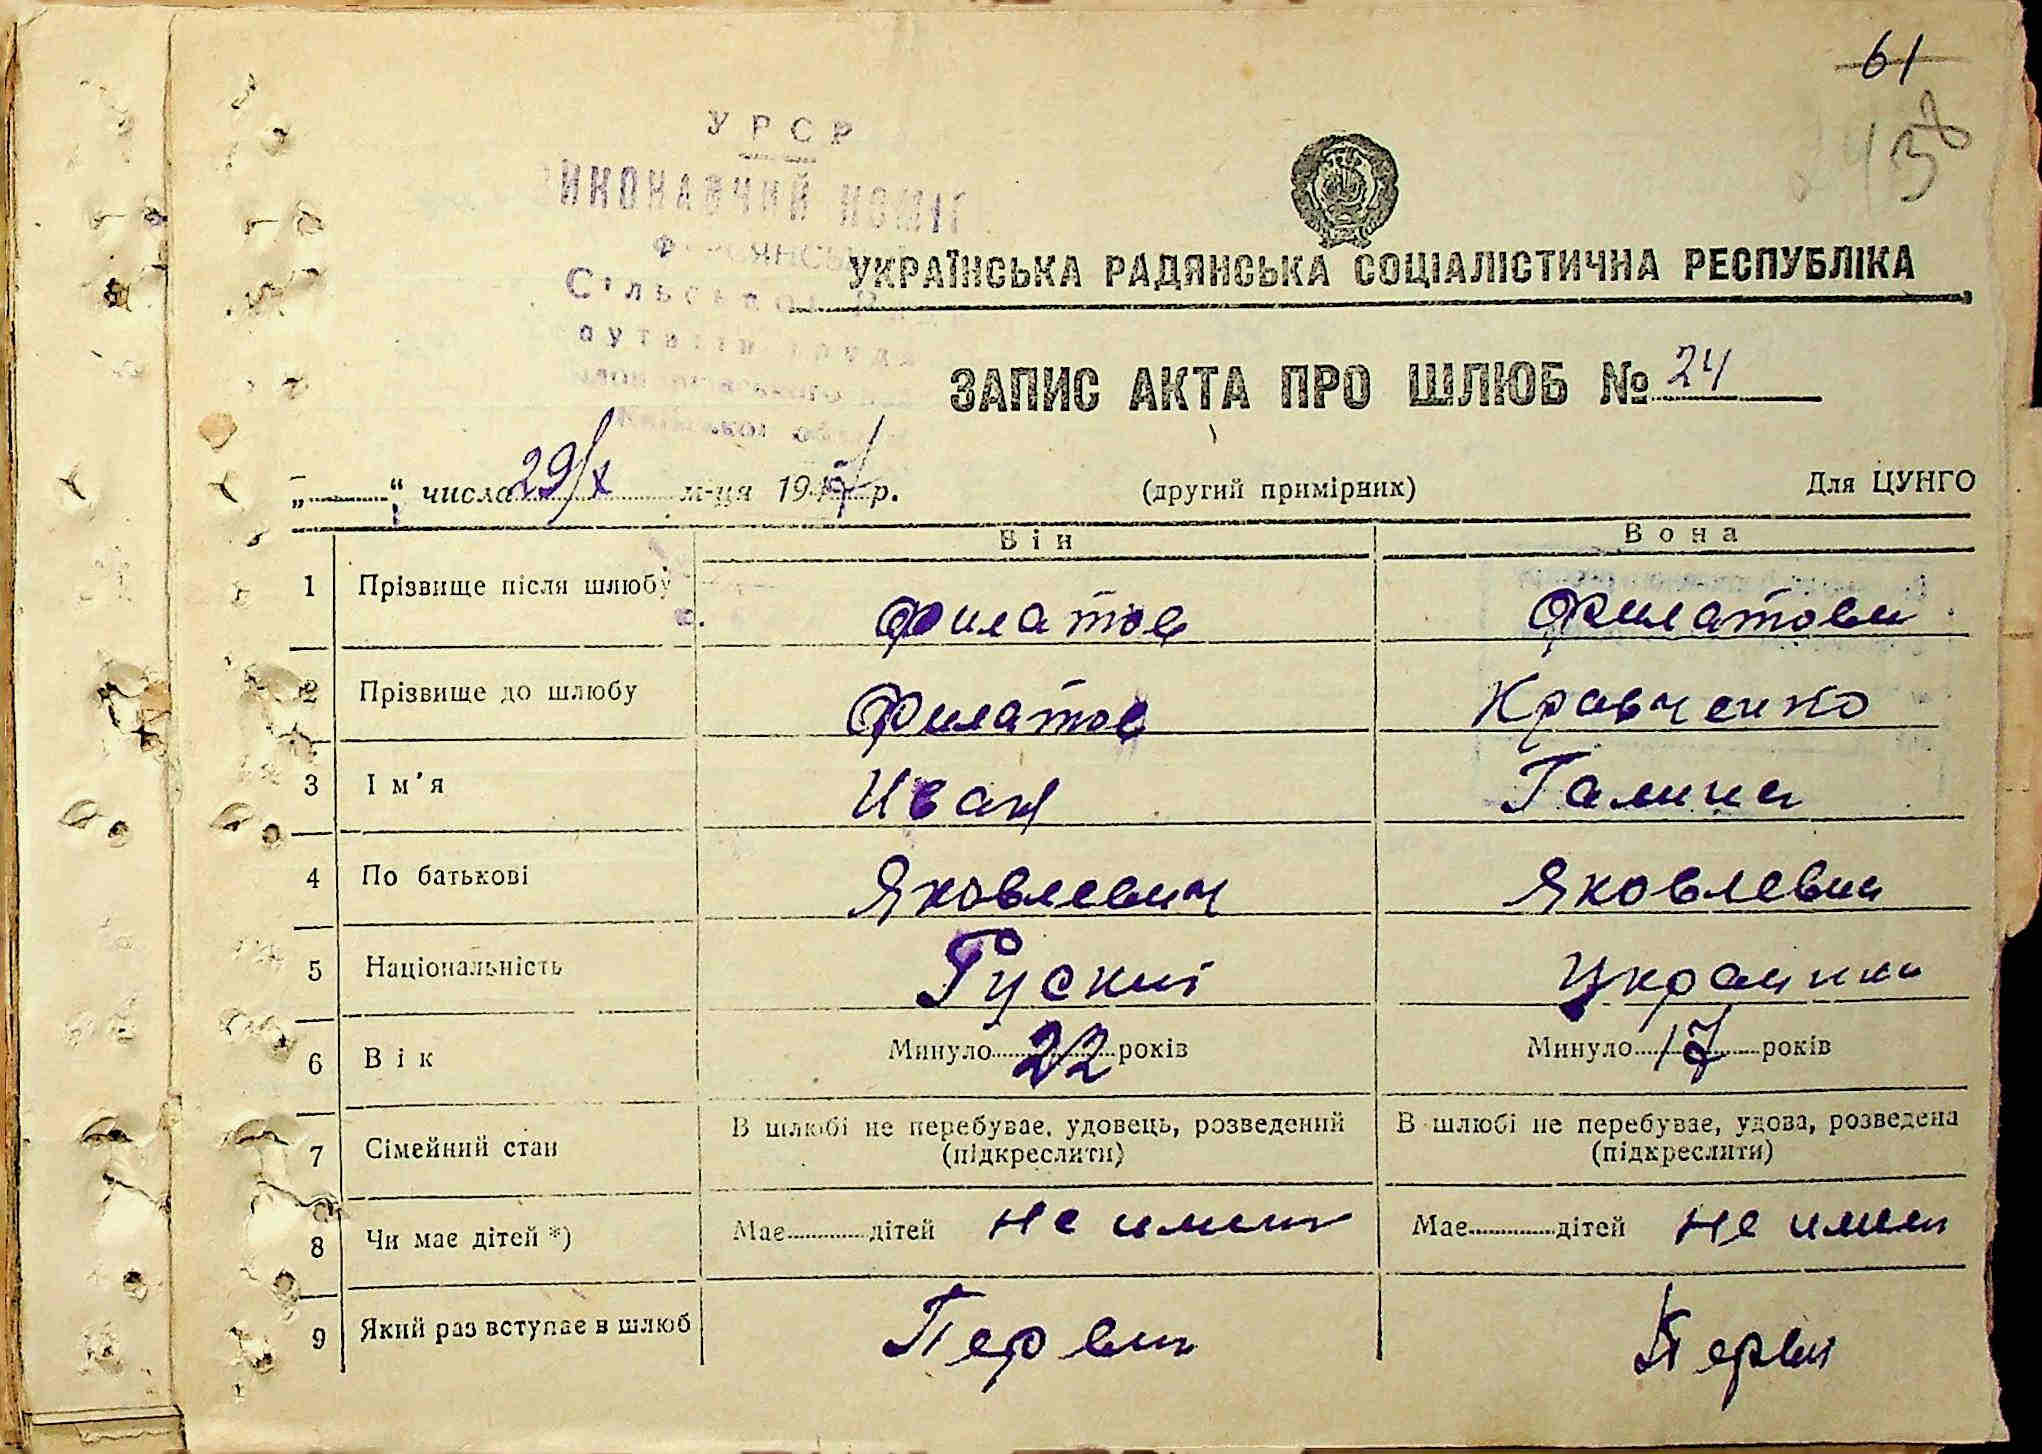 61
УРСР
ВИКОНАВЧИЙ КОМІТ
УКРАЇНСЬКА РАДЯНСЬКА СОЦІАЛІСТИЧНА РЕСПУБЛІКА
ЗАПИС АКТА ПРО ШЛЮБ № 24
„ “ числа 29/X м-ця 19 р.
(другий примірник)
Для ЦУНГО
Він
Вона
1 Прізвище після шлюбу Филатов Филатова
2 Прізвище до шлюбу Филатов Кравченко
3 Ім'я Иван Галина
4 По батькові Яковлевич Яковлевна
5 Національність Руский Украинка
6 Вік Минуло 22 років Минуло 17 років
7 Сімейний стан В шлюбі не перебуває, удовець, розведений (підкреслити) В шлюбі не перебуває, удова, розведена (підкреслити)
8 Чи має дітей *) Має дітей не имеит Має дітей не имеит
9 Який раз вступає в шлюб Первий Первий